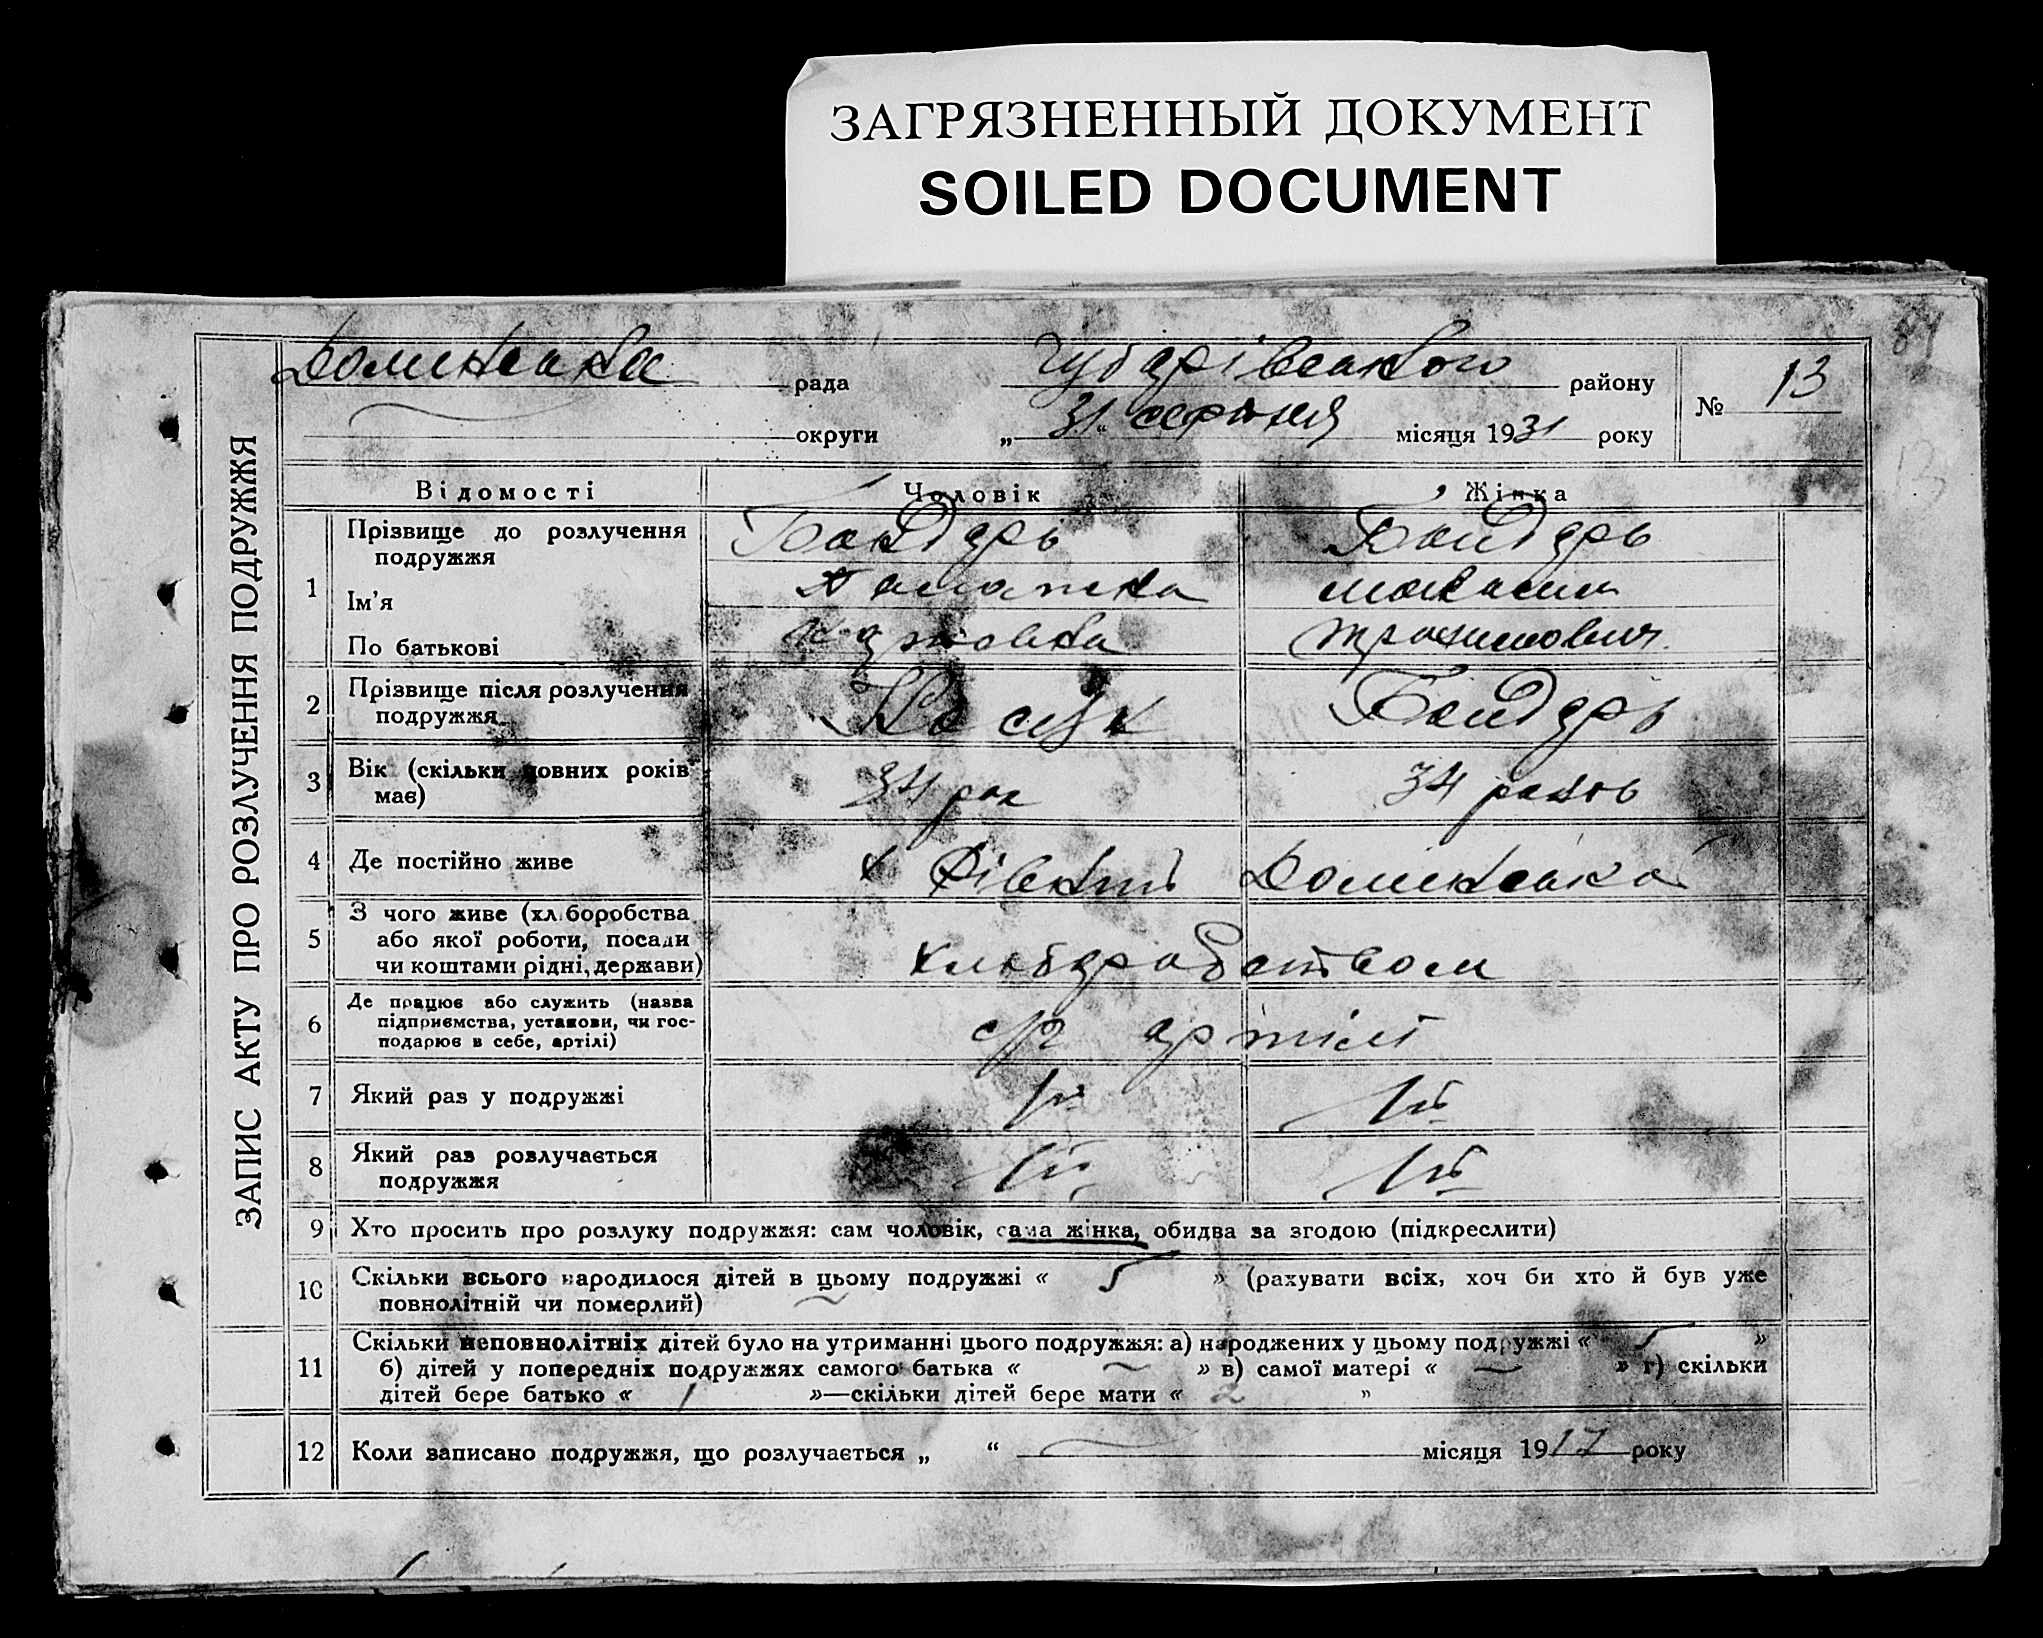 ЗАГРЯЗНЕННЫЙ ДОКУМЕНТ
SOILED DOCUMENT
84
ЗАПИС АКТУ ПРО РОЗЛУЧЕННЯ ПОДРУЖЖЯ
Долинська рада Чубарівського району № 13
округи „ 31 “ серпня місяця 1931 року
13
Відомості Чоловік Жінка
1 Прізвище до розлучення подружжя Бондарь Бондарь
Ім'я
По батькові Трохимович
2 Прізвище після розлучення подружжя Носик Бондарь
3 Вік (скільки повних років має) 34 рок 34 роков
4 Де постійно живе х Рівний Долинська
5 З чого живе (хліборобства або якої роботи, посади чи коштами рідні, держави) хліборобством
6 Де працює або служить (назва підприємства, установи, чи господарює в себе, артілі) с/г артілі
7 Який раз у подружжі 1й 1й
8 Який раз розлучається подружжя 1й 1й
9 Хто просить про розлуку подружжя: сам чоловік, сама жінка, обидва за згодою (підкреслити)
10 Скільки всього народилося дітей в цьому подружжі « 5 » (рахувати всіх, хоч би хто й був уже
повнолітній чи померлий)
11 Скільки неповнолітніх дітей було на утриманні цього подружжя: а) народжених у цьому подружжі « 5 »
б) дітей у попередніх подружжях самого батька « — » в) самої матері « — » г) скільки
дітей бере батько « 1 »—скільки дітей бере мати « 2 »
12 Коли записано подружжя, що розлучається „ “ місяця 1917 року